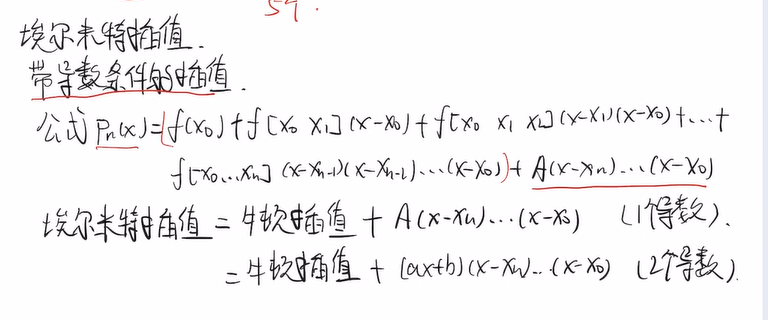 54.
埃尔米特插值.
带导数条件的插值.
公式 Pn(x)=(f(x0)+f[x0 x1](x-x0)+f[x0 x1 x2](x-x1)(x-x0)+...+
f[x0...xn](x-xn-1)(x-xn-2)...(x-x0))+A(x-xn)...(x-x0)
埃尔米特插值=牛顿插值+A(x-xn)...(x-x0) (1个导数).
=牛顿插值+(ax+b)(x-xn)...(x-x0) (2个导数).